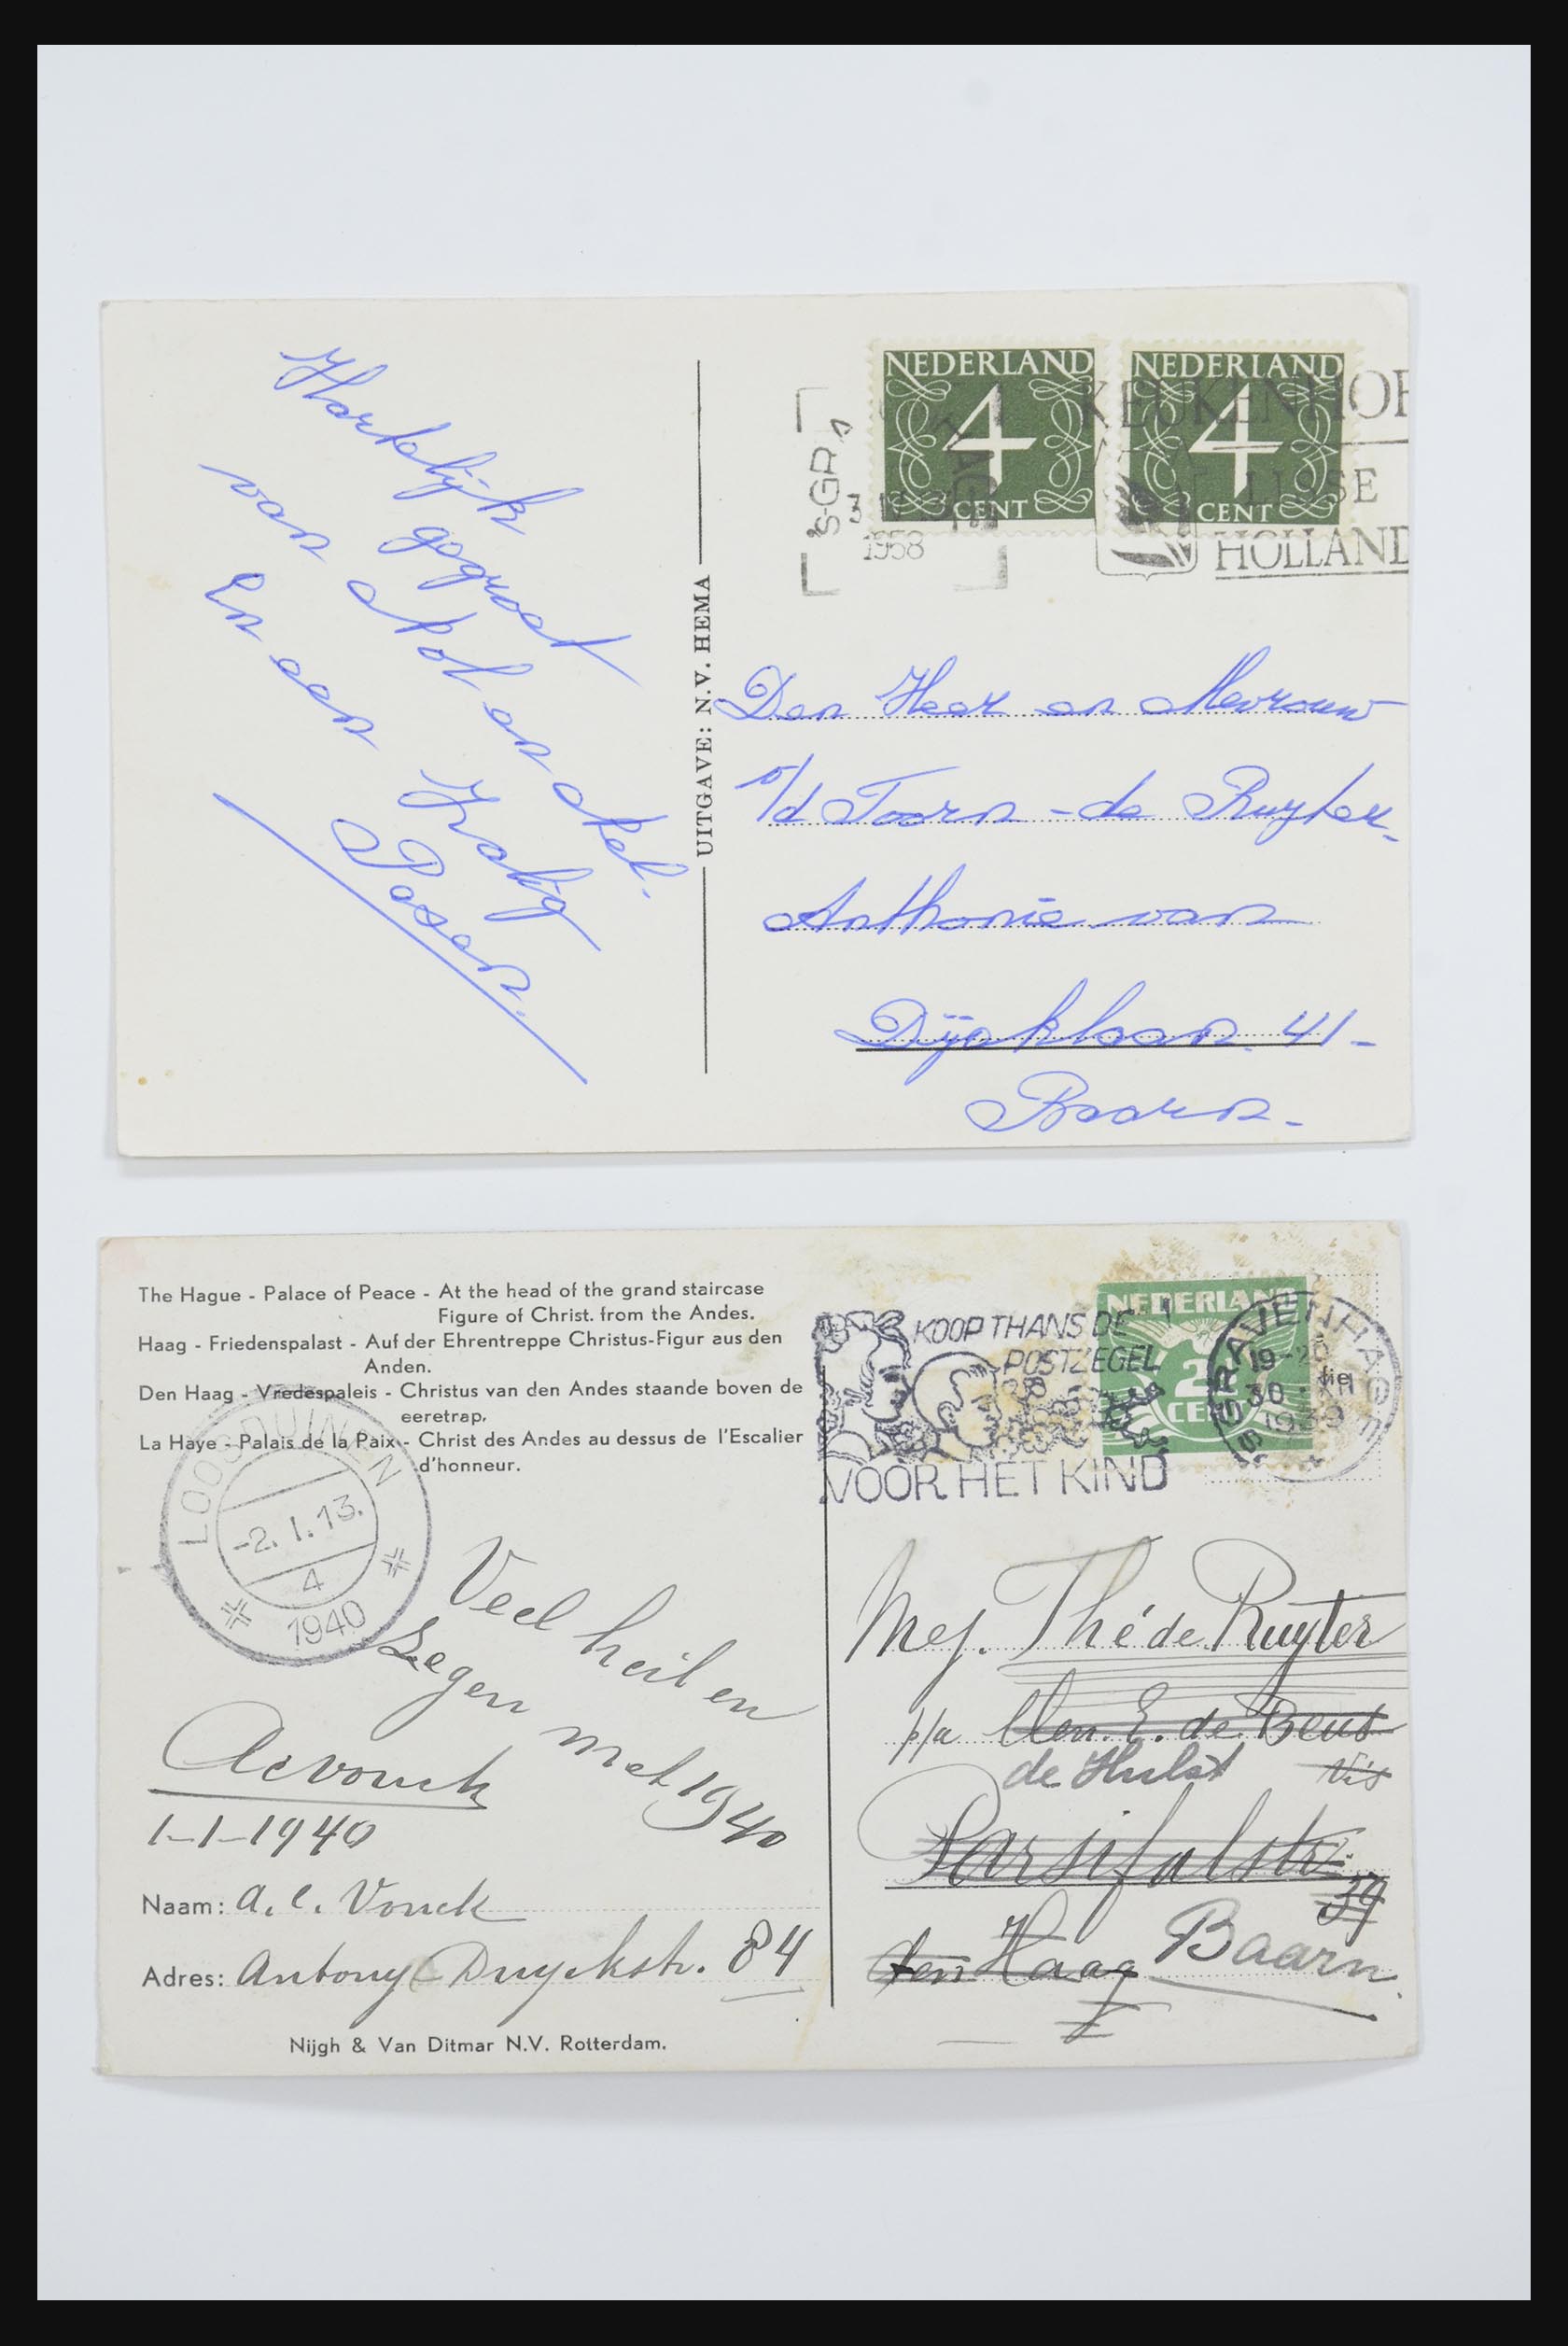 Hartelijk
gegroet
van
en
En een Zalig
Pasen.
UITGAVE: N.V. HEMA
NEDERLAND
4
CENT
NEDERLAND
4
CENT
'S-GRA
1958
KEUKENHOF
LISSE
HOLLAND
Den Heer en Mevrouw
v/d Toorn - de Ruyter -
Anthonie van
Dijcklaan 41 -
Baarn -
The Hague - Palace of Peace - At the head of the grand staircase
Figure of Christ. from the Andes.
Haag - Friedenspalast - Auf der Ehrentreppe Christus-Figur aus den
Anden.
Den Haag - Vredespaleis - Christus van den Andes staande boven de
eeretrap.
La Haye - Palais de la Paix - Christ des Andes au dessus de l'Escalier
d'honneur.
LOOSDUINEN
-2.I.13.
4
1940
KOOP THANS DE
POSTZEGEL
VOOR HET KIND
NEDERLAND
CENT
'S GRAVENHAGE
30 XII
1939
Veel heil en
Zegen met 1940
ACVonck
1-1-1940
Naam: A. C. Vonck
Adres: Antony Duyckstr. 84
Nijgh & Van Ditmar N.V. Rotterdam.
Mej. Thé de Ruyter
p/a E. de Beus
de Hulst
Parsifalstr.
39
den Haag Baarn.